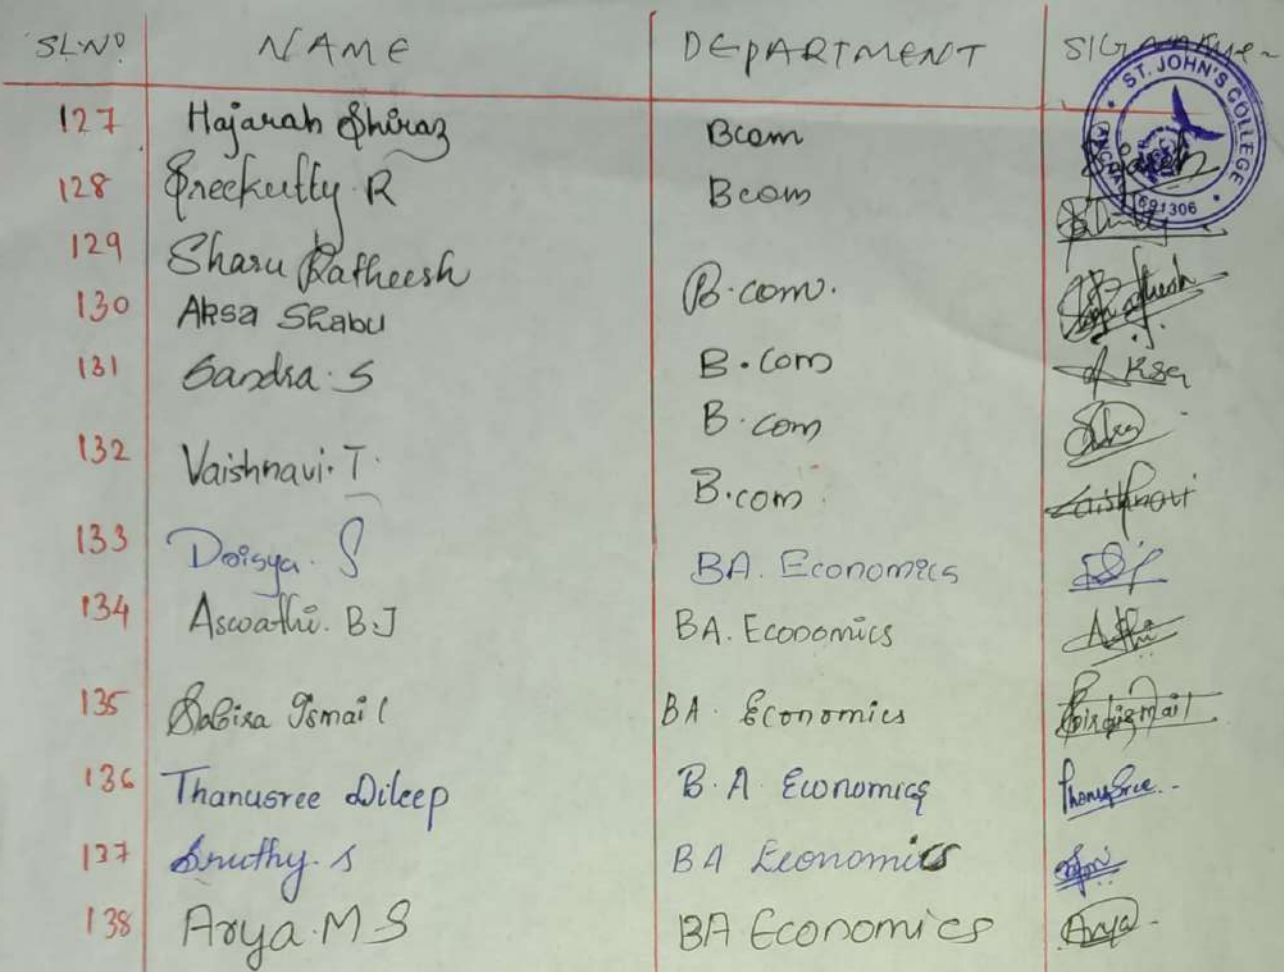 SL.NO NAME DEPARTMENT SIGNATURE
127 Hajarah Shiraz Bcom
128 Sreekutty R Bcom
129 Sharu Ratheesh B.com.
130 Aksa Shabu B.com Aksa
131 Sandra. S B.com
132 Vaishnavi. T. B.com Vaishnavi
133 Doisya. S BA. Economics
134 Aswathi. B.J BA. Economics
135 Sabira Ismail BA. Economics
136 Thanusree Dileep B.A Economics Thanusree
137 Sruthy. S BA Economics
138 Arya. M S BA Economics Arya
ST. JOHN'S COLLEGE
691306